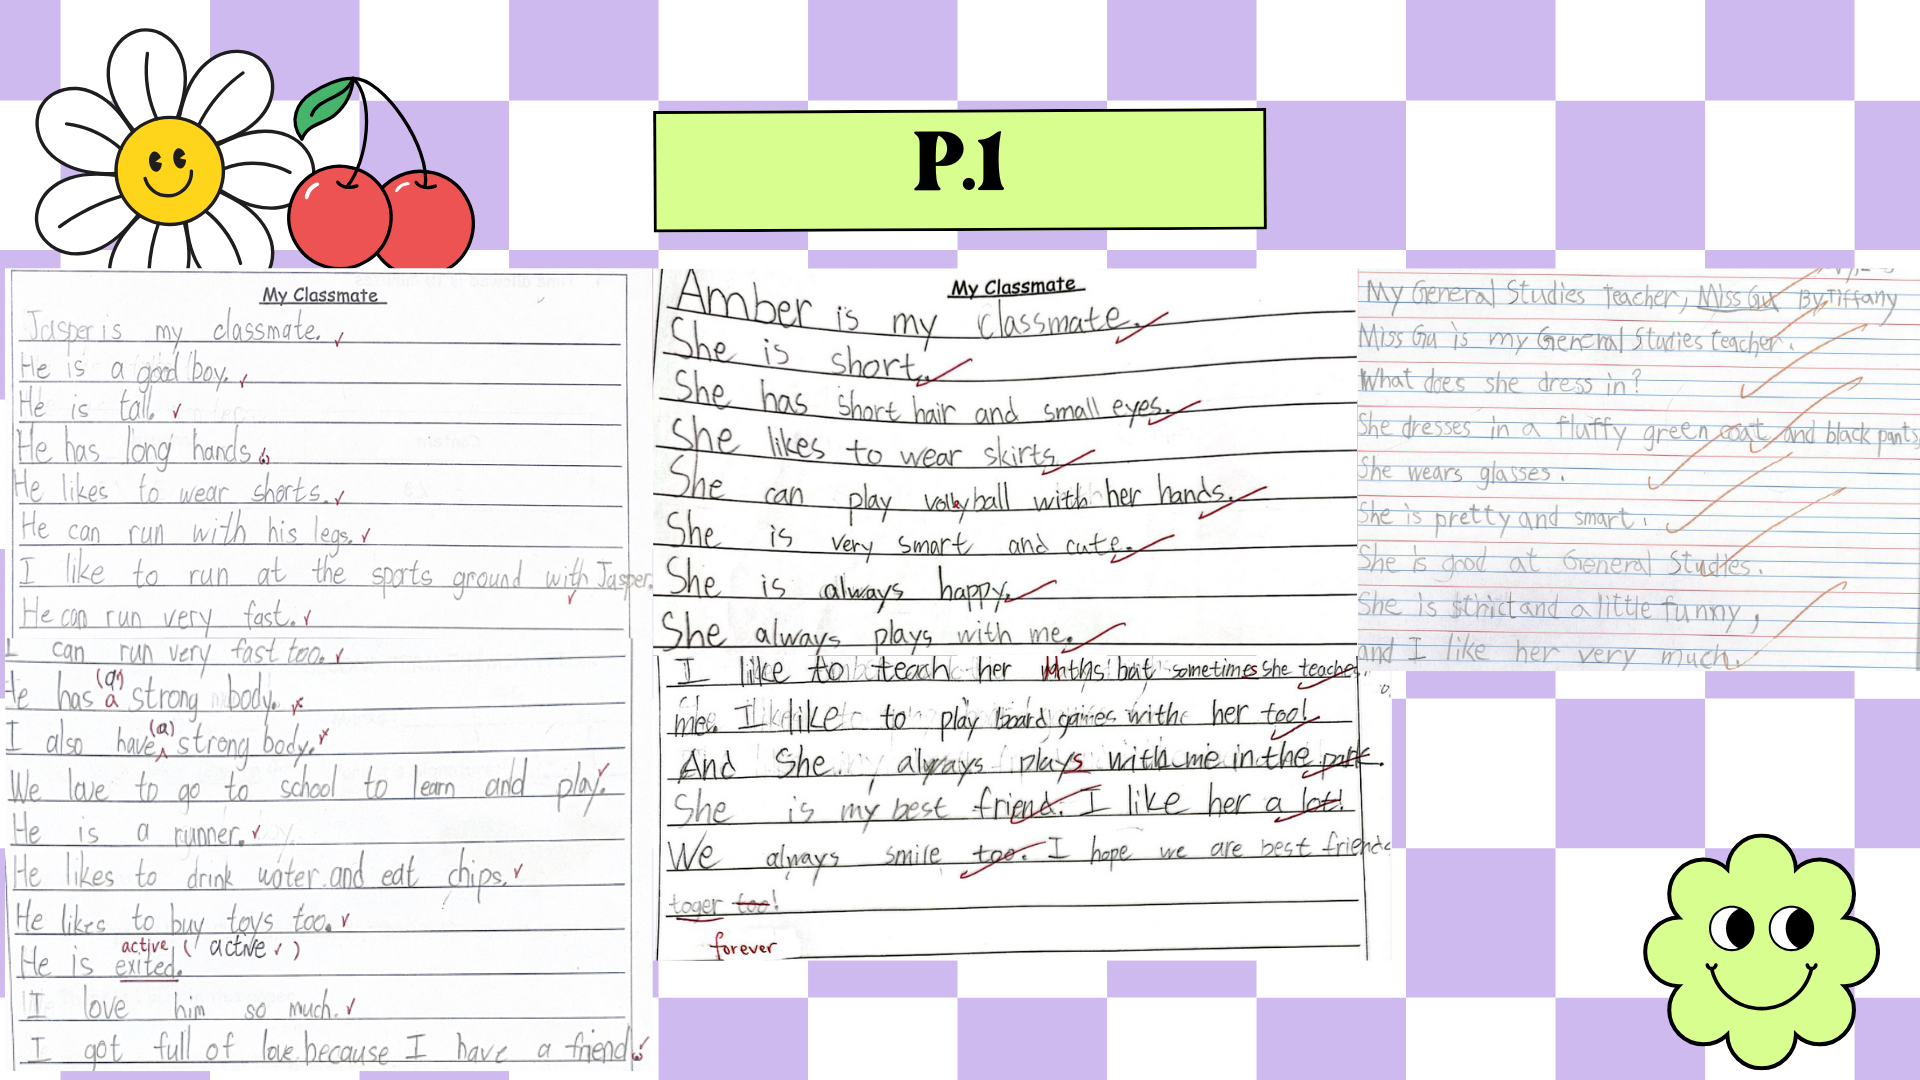 P.1
My Classmate
Jasper is my classmate.
He is a good boy.
He is tall.
He has long hands.
He likes to wear shorts.
He can run with his legs.
I like to run at the sports ground with Jasper.
He can run very fast.
I can run very fast too.
(a)
He has a strong body.
(a)
I also have strong body.
We love to go to school to learn and play.
He is a runner.
He likes to drink water and eat chips.
He likes to buy toys too.
active ( active )
He is exited.
I love him so much.
I got full of love because I have a friend.
My Classmate
Amber is my classmate.
She is short.
She has short hair and small eyes.
She likes to wear skirts
She can play volleyball with her hands.
She is very smart and cute.
She is always happy.
She always plays with me.
I like to teach her Maths but sometimes she teaches
me. I like to play board games with her too!
And She always plays with me in the park.
She is my best friend. I like her a lot!
We always smile too. I hope we are best friends
toger too!
forever
My General Studies Teacher, Miss Gu By Tiffany
Miss Gu is my General Studies teacher.
What does she dress in?
She dresses in a fluffy green coat and black pants
She wears glasses.
She is pretty and smart.
She is good at General Studies.
She is strict and a little funny,
and I like her very much.